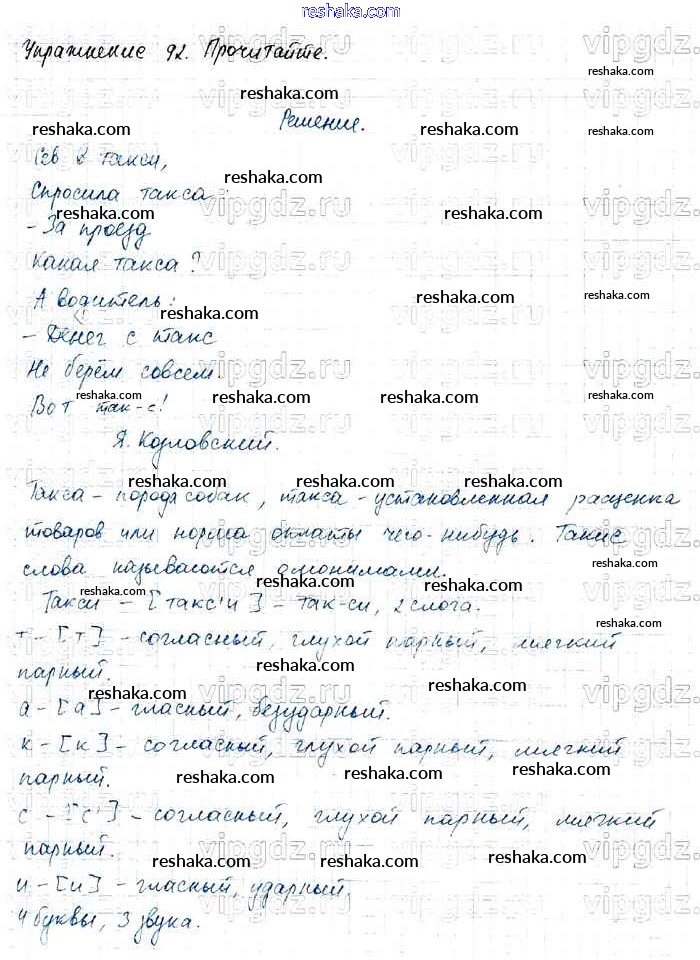 reshaka.com
Упражнение 92. Прочитайте.
Решение.
Сев в такси,
Спросила такса:
- За проезд
Какая такса?
А водитель:
- Денег с такс
Не берём совсем.
Вот так-с!
Я. Козловский.
Такса - порода собак, такса - установленная расценка
товаров или норма оплаты чего-нибудь. Такие
слова называются омонимами.
Такси - [такс'и] - так-си, 2 слога.
т - [т] - согласный, глухой парный, мягкий
парный.
а - [а] - гласный, безударный.
к - [к] - согласный, глухой парный, мягкий
парный.
с - [с'] - согласный, глухой парный, мягкий
парный.
и - [и] - гласный, ударный.
4 буквы, 3 звука.